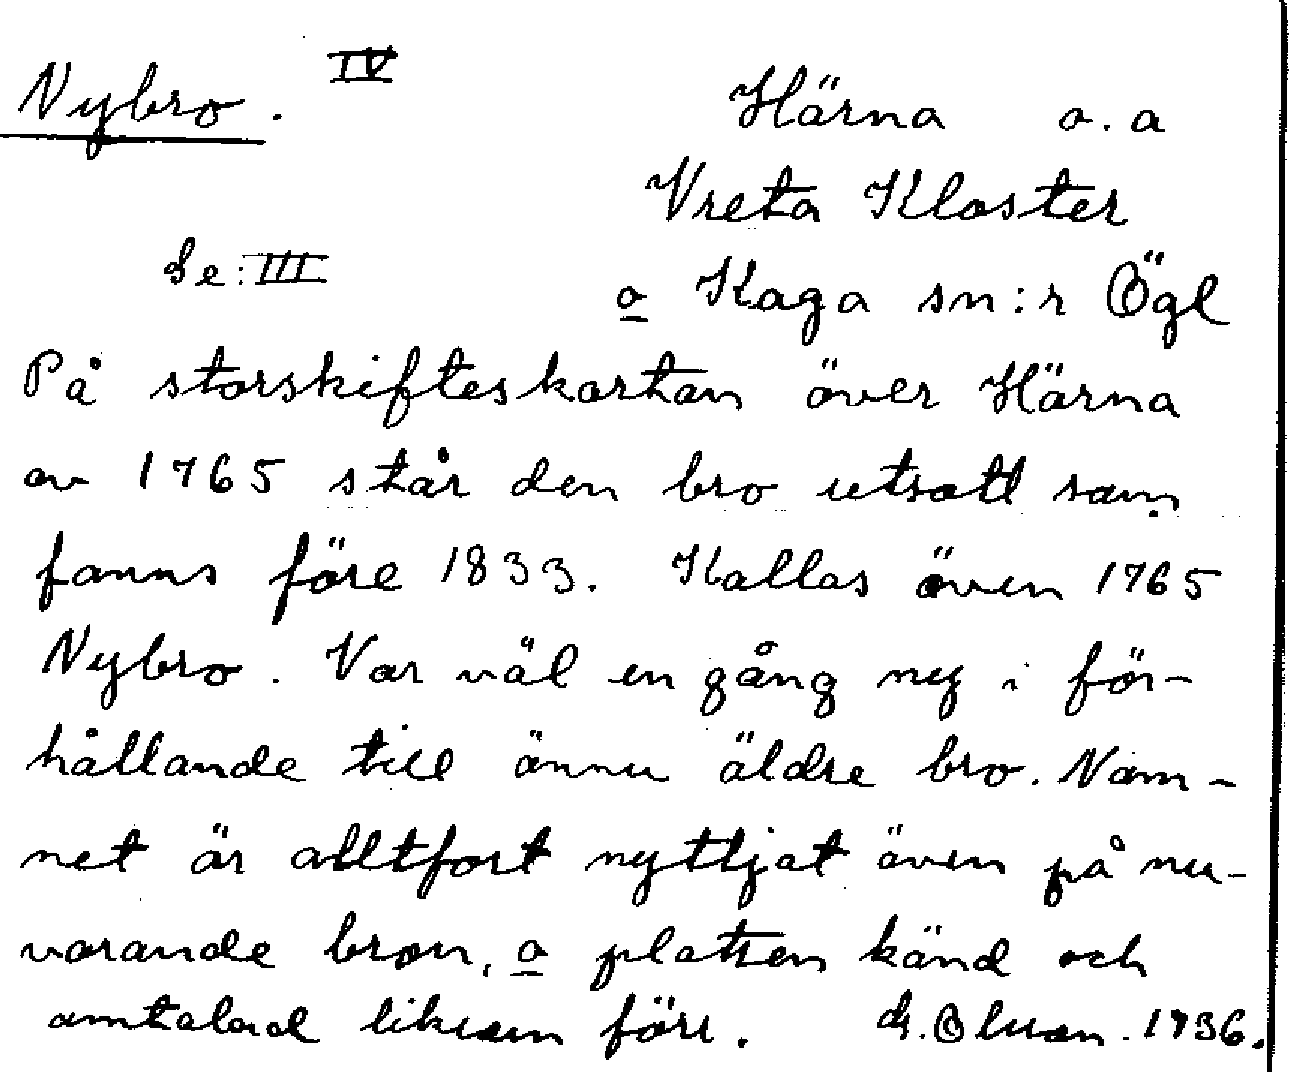 Nybro. IV
Härna o. a
Vreta Kloster
Se: III
o Kaga sn:r Ögl
På storskifteskartan över Härna
av 1765 står den bro utsatt som
fanns före 1833. Kallas även 1765
Nybro. Var väl en gång ny i för-
hållande till ännu äldre bro. Nam-
net är alltfort nyttjat även på nu-
varande bron, o platsen känd och
omtalad liksom förr. G. Olsson. 1936.